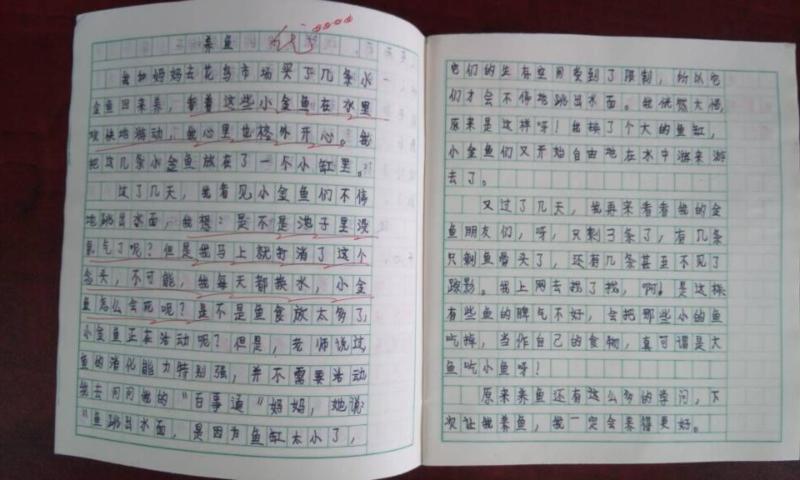 养鱼
我和妈妈去花鸟市场买了几条小
金鱼回来养，看着这些小金鱼在水里
欢快地游动，我心里也格外开心。我
把这几条小金鱼放在了一个小缸里。
过了几天，我看见小金鱼们不停
地跳出水面，我想？是不是池子里没
氧气了呢？但是我马上就打消了这个
念头，不可能，我每天都换水，小金
鱼怎么会死呢？是不是鱼食放太多了，
小金鱼正在活动呢？但是，老师说过，
鱼的消化能力特别强，并不需要活动
我去问问我的“百事通”妈妈，她说：
“鱼跳出水面，是因为鱼缸太小了，
它们的生存空间受到了限制，所以它
们才会不停地跳出水面。我恍然大悟，
原来是这样呀！我换了个大的鱼缸，
小金鱼们又开始自由地在水中游来游
去了。
又过了几天，我再来看看我的金
鱼朋友们，呀，只剩3条了，有几条
只剩鱼骨头了，还有几条甚至不见了
踪影。我上网去找了找，啊！是这样
有些鱼的脾气不好，会把那些小的鱼
吃掉，当作自己的食物，真可谓是大
鱼吃小鱼呀！
原来养鱼还有这么多的学问，下
次让我养鱼，我一定会养得更好。